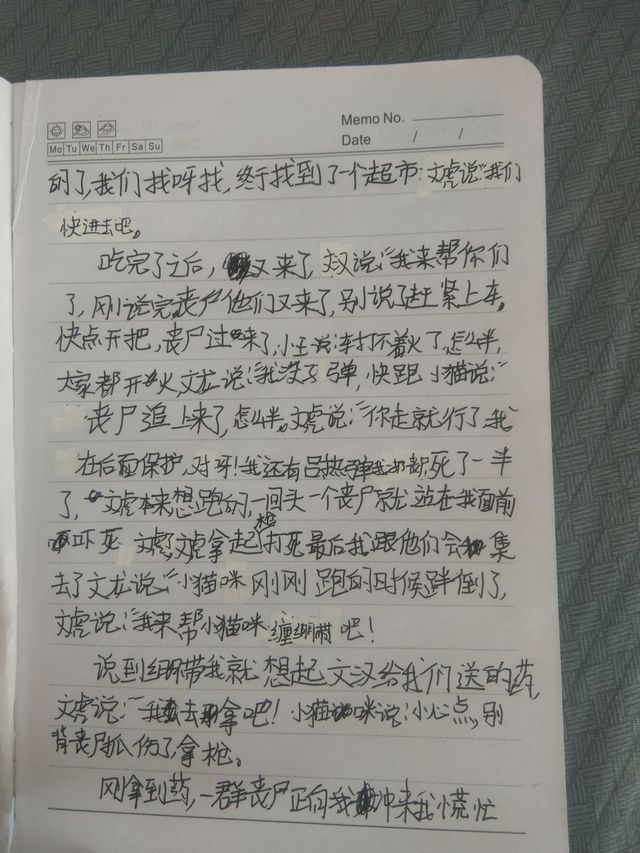 Memo No.
Date / /
Mo Tu We Th Fr Sa Su
的了,我们找呀找,终于找到了一个超市:文虎说:"我们
快进去吧。
吃完了之后,又来了,文汉说:"我来帮你们
了,刚说完,丧尸他们又来了,别说了赶紧上车,
快点开把,丧尸过来了,小王说:车打不着火了,怎么半,
大家都开火,文龙说:"我没了弹,快跑 小猫说:"
丧尸追上来了,怎么半。文虎说:"你走就行了,我
在后面保护,对呀!我还有 死了一半
了,文虎本来想跑的,一回头一个丧尸就站在我面前
吓死 文虎了,文虎拿起枪打死最后我跟他们会集
去了文龙说:"小猫咪刚刚跑的时候跘倒了,
文虎说:"我来帮小猫咪缠绷带吧!
说到绷带我就想起文汉给我们送的药,
文虎说:"我去拿吧!小猫咪说:小心点,别
背丧尸抓伤了拿枪。
刚拿到药,一群丧尸正向我冲来我慌忙